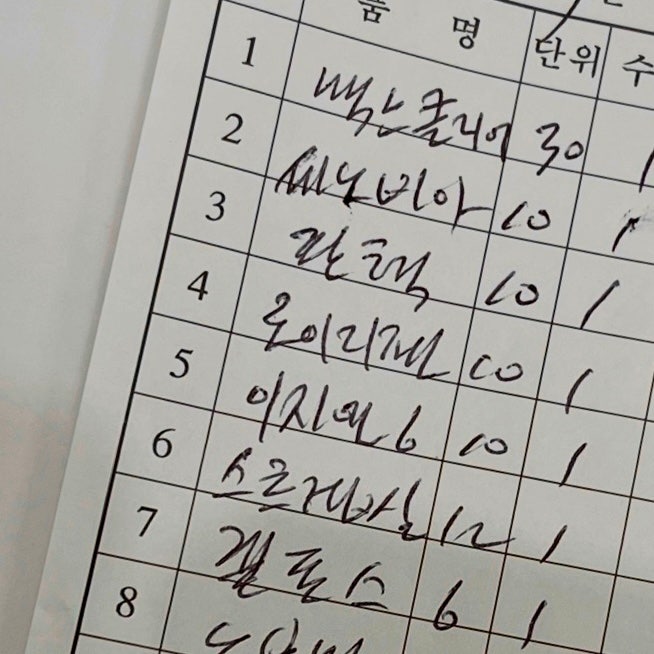 품 명 단위 수
1 벡노졸리어 30 1
2 씨노비아 10 1
3 판택 10 1
4 로이리젠 10 1
5 이지엔6 10 1
6 스트레바실 12 1
7 겔포스 6 1
8